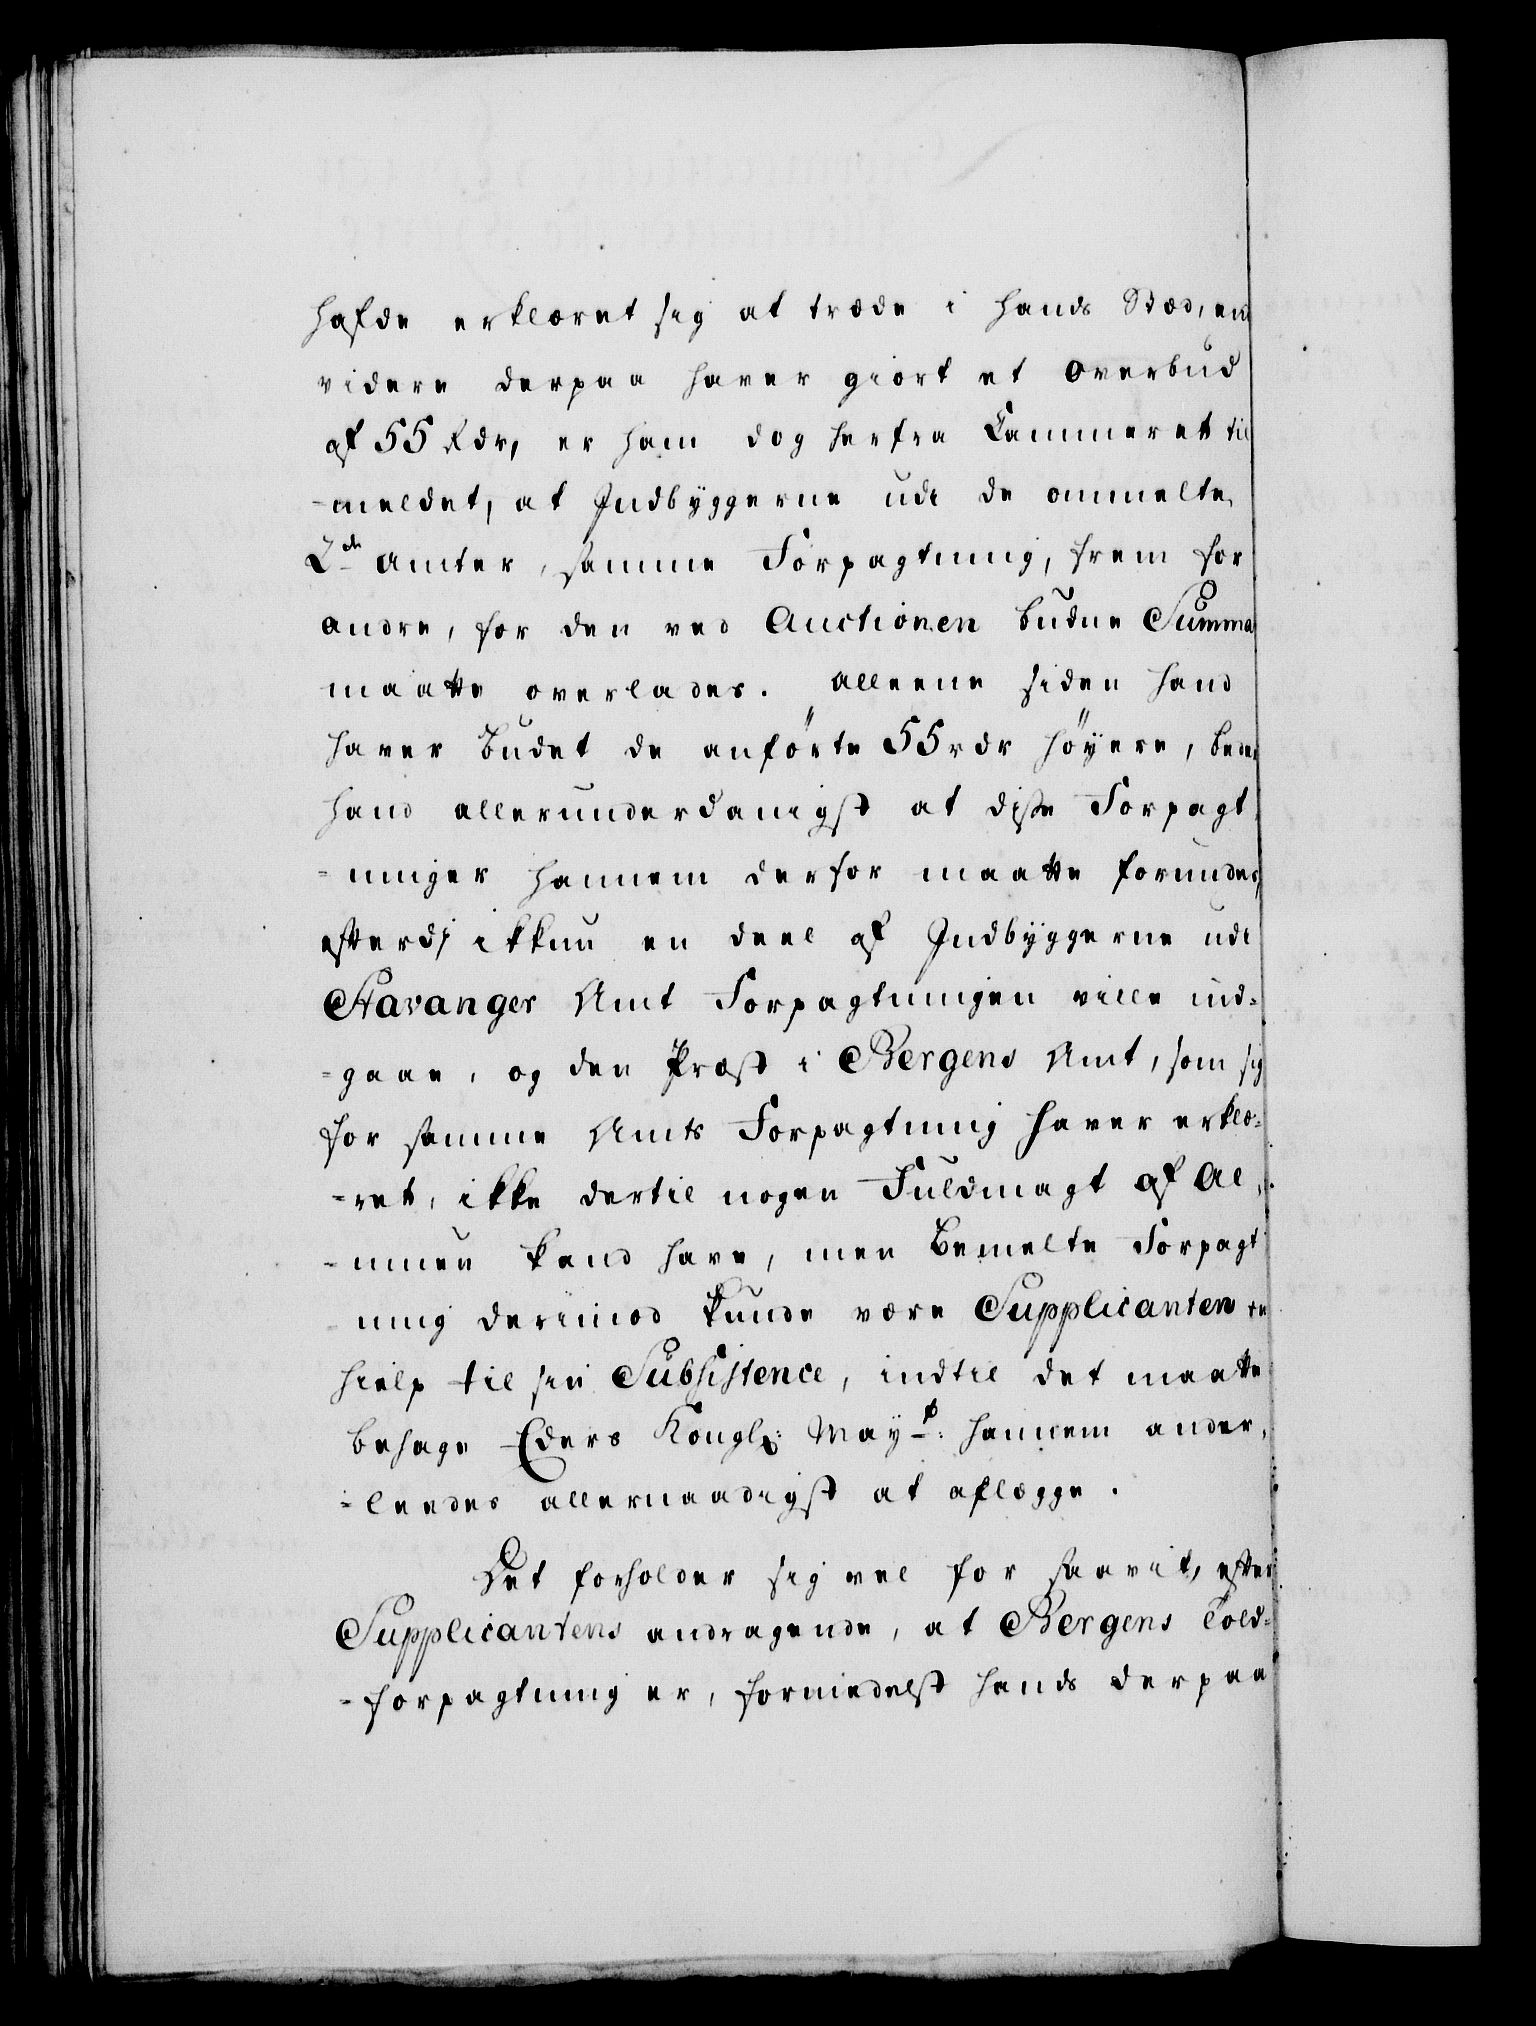 hafde erklæret sig at træde i hands Stæd, end
videre derpaa haver giort et overbud
af 55 Rdr, er ham dog herfra Cammeret til
-meldet, at Indbÿggerne udi de ommelte
2de Amter, samme Forpagtning, frem for
andre, for den ved Auctionen budne Summa
maatte overlades. Alleene siden hand
haver budet de anförte 55 rdr höyere, beder
hand allerunderdanigst at disse Forpagt
-ninger hannem derfor maatte forundes,
efterdj ikkun en deel af Indbÿggerne udi
Stavanger Amt Forpagtningen ville ind-
-gaae, og den Præst i Bergens Amt, som sig
for samme Amts Forpagtning haver erklæ-
-ret, ikke dertil nogen Fuldmagt af Al-
-muen kand have, men bemelte Forpagt
-ning derimod kunde være Supplicanten en
hielp til sin Subsistence, indtil det maatte
behage Eders Kongl: Mayt: hannem ander-
-leedes allernaadigst at aflægge.
Det forholder sig vel for saavit, efter
Supplicantens andragende, at Bergens Told-
-forpagtning er, formedelst hands derpaa